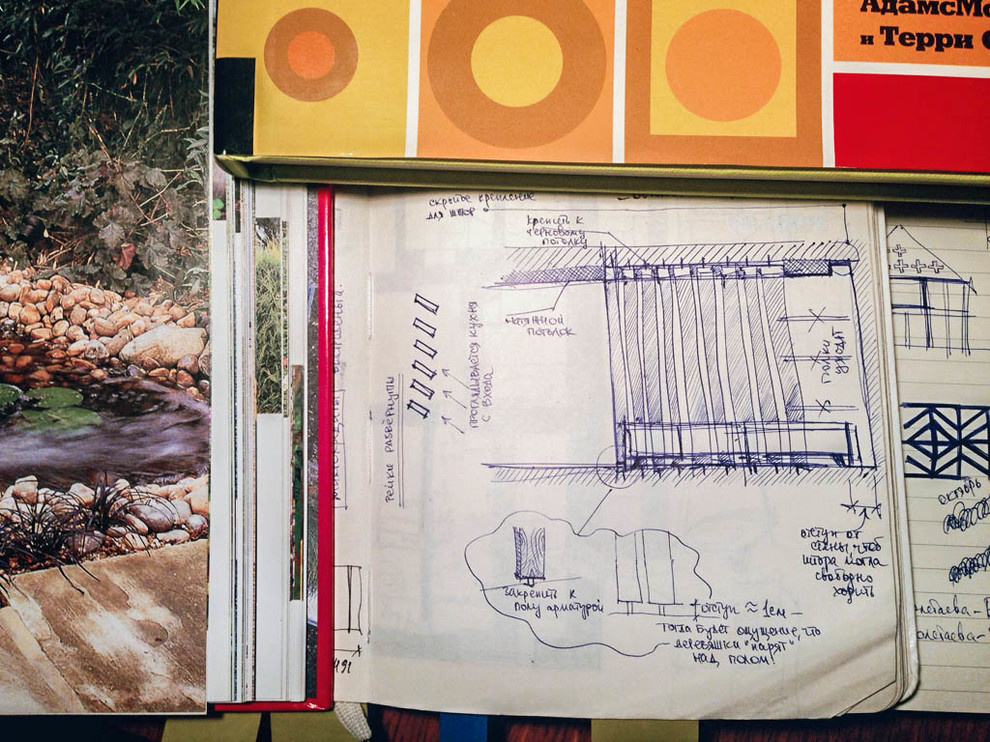 АдамсМо
и Терри С
скрытое крепление
для штор
крепить к
черновому
потолку
натяжной
потолок
рейки развёрнуты
проглядывается кухня
с входа
полки
уходят
отступ от
стены, чтоб
штора могла
свободно
ходить
закрепить к
полу арматурой
отступ ≈ 1см
тогда будет ощущение, что
деревяшки "парят"
над полом!
октябрь